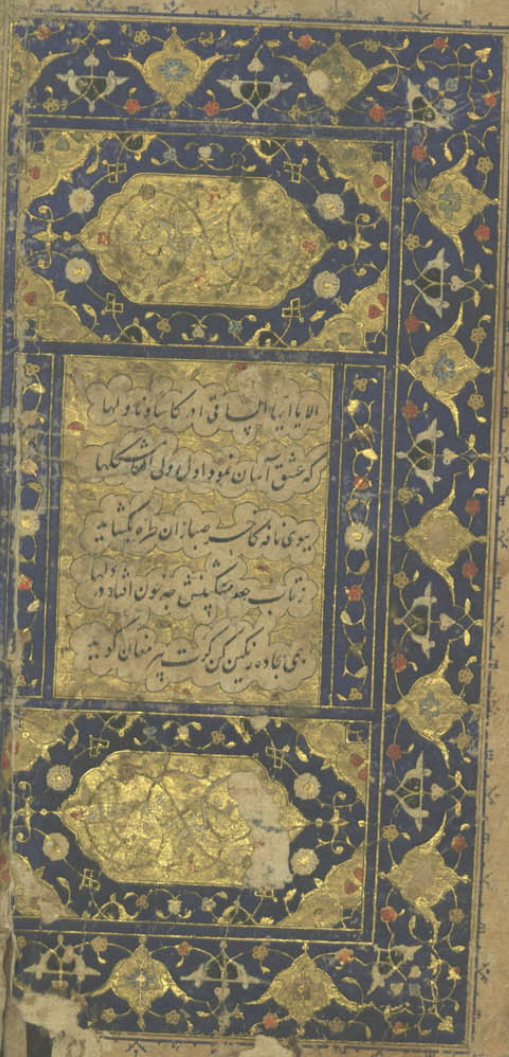 الا یا ایها الساقی ادر کاسا و ناولها
که عشق آسان نمود اول ولی افتاد مشکلها
ببوی نافه کاخر صبا زان طره بگشاید
ز تاب جعد مشکینش چه خون افتاد در دلها
بمی سجاده رنگین کن گرت پیر مغان گوید